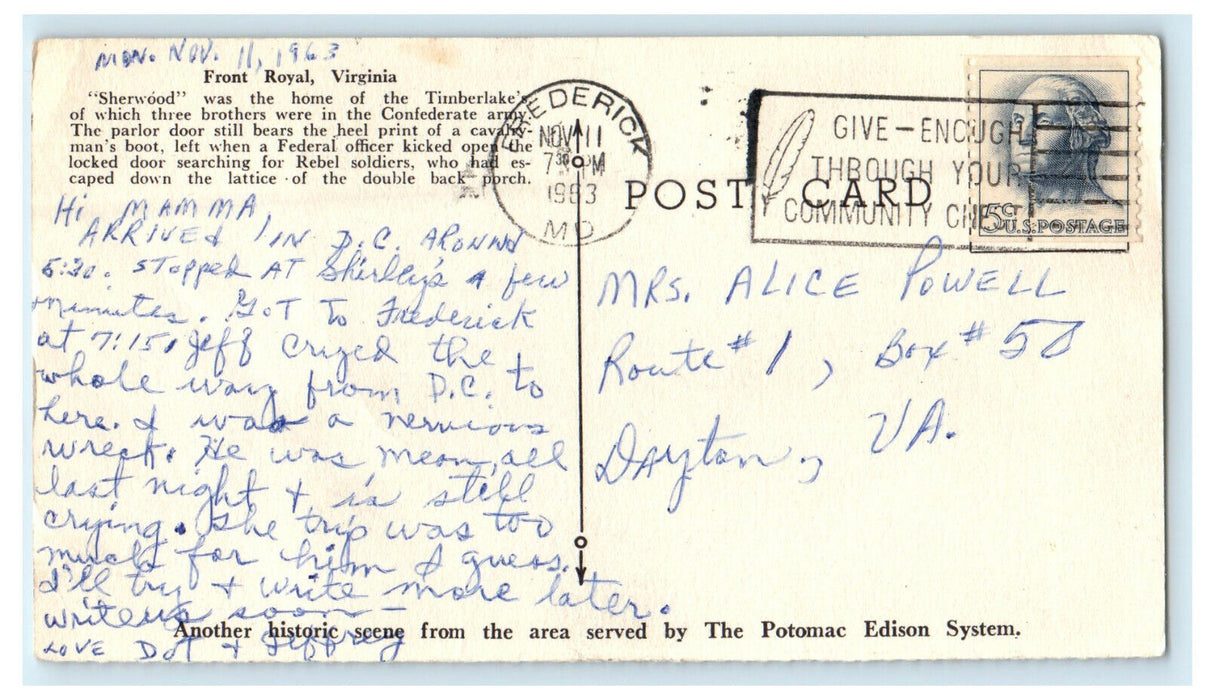 MON. NOV. 11, 1963
Front Royal, Virginia
"Sherwood" was the home of the Timberlake's
of which three brothers were in the Confederate army.
The parlor door still bears the heel print of a cavalry-
man's boot, left when a Federal officer kicked open the
locked door searching for Rebel soldiers, who had es-
caped down the lattice of the double back porch.
Hi MAMMA,
ARRIVED IN D.C. AROUND
5:30. STOPPED AT Shirley's a few
minutes. GOT TO Frederick
at 7:15. Jeff cryed the
whole way from D.C. to
here. I was a nervious
wreck. He was mean all
last night + is still
crying. The trip was too
much for him I guess.
I'll try + write more later.
write us soon –
LOVE DOT & Jeffrey
FREDERICK
NOV 11
7 30 PM
1963
MD
GIVE–ENOUGH
THROUGH YOUR
COMMUNITY CHEST
5¢
U.S. POSTAGE
POST CARD
MRS. ALICE POWELL
Route #1, Box #58
Dayton, VA.
Another historic scene from the area served by The Potomac Edison System.